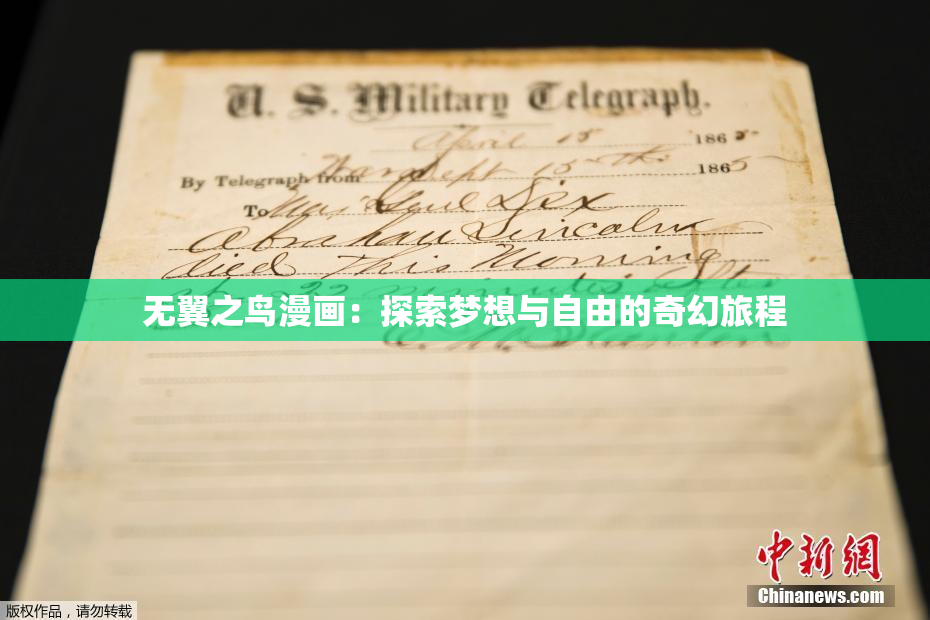 U. S. Military Telegraph.
April 15 1865
By Telegraph from War Dept 15th 1865
To Maj Genl Dix
Abraham Lincoln
died This Morning
at 22 minutes after
无翼之鸟漫画：探索梦想与自由的奇幻旅程
E. M. Stanton
中新网
Chinanews.com
版权作品，请勿转载